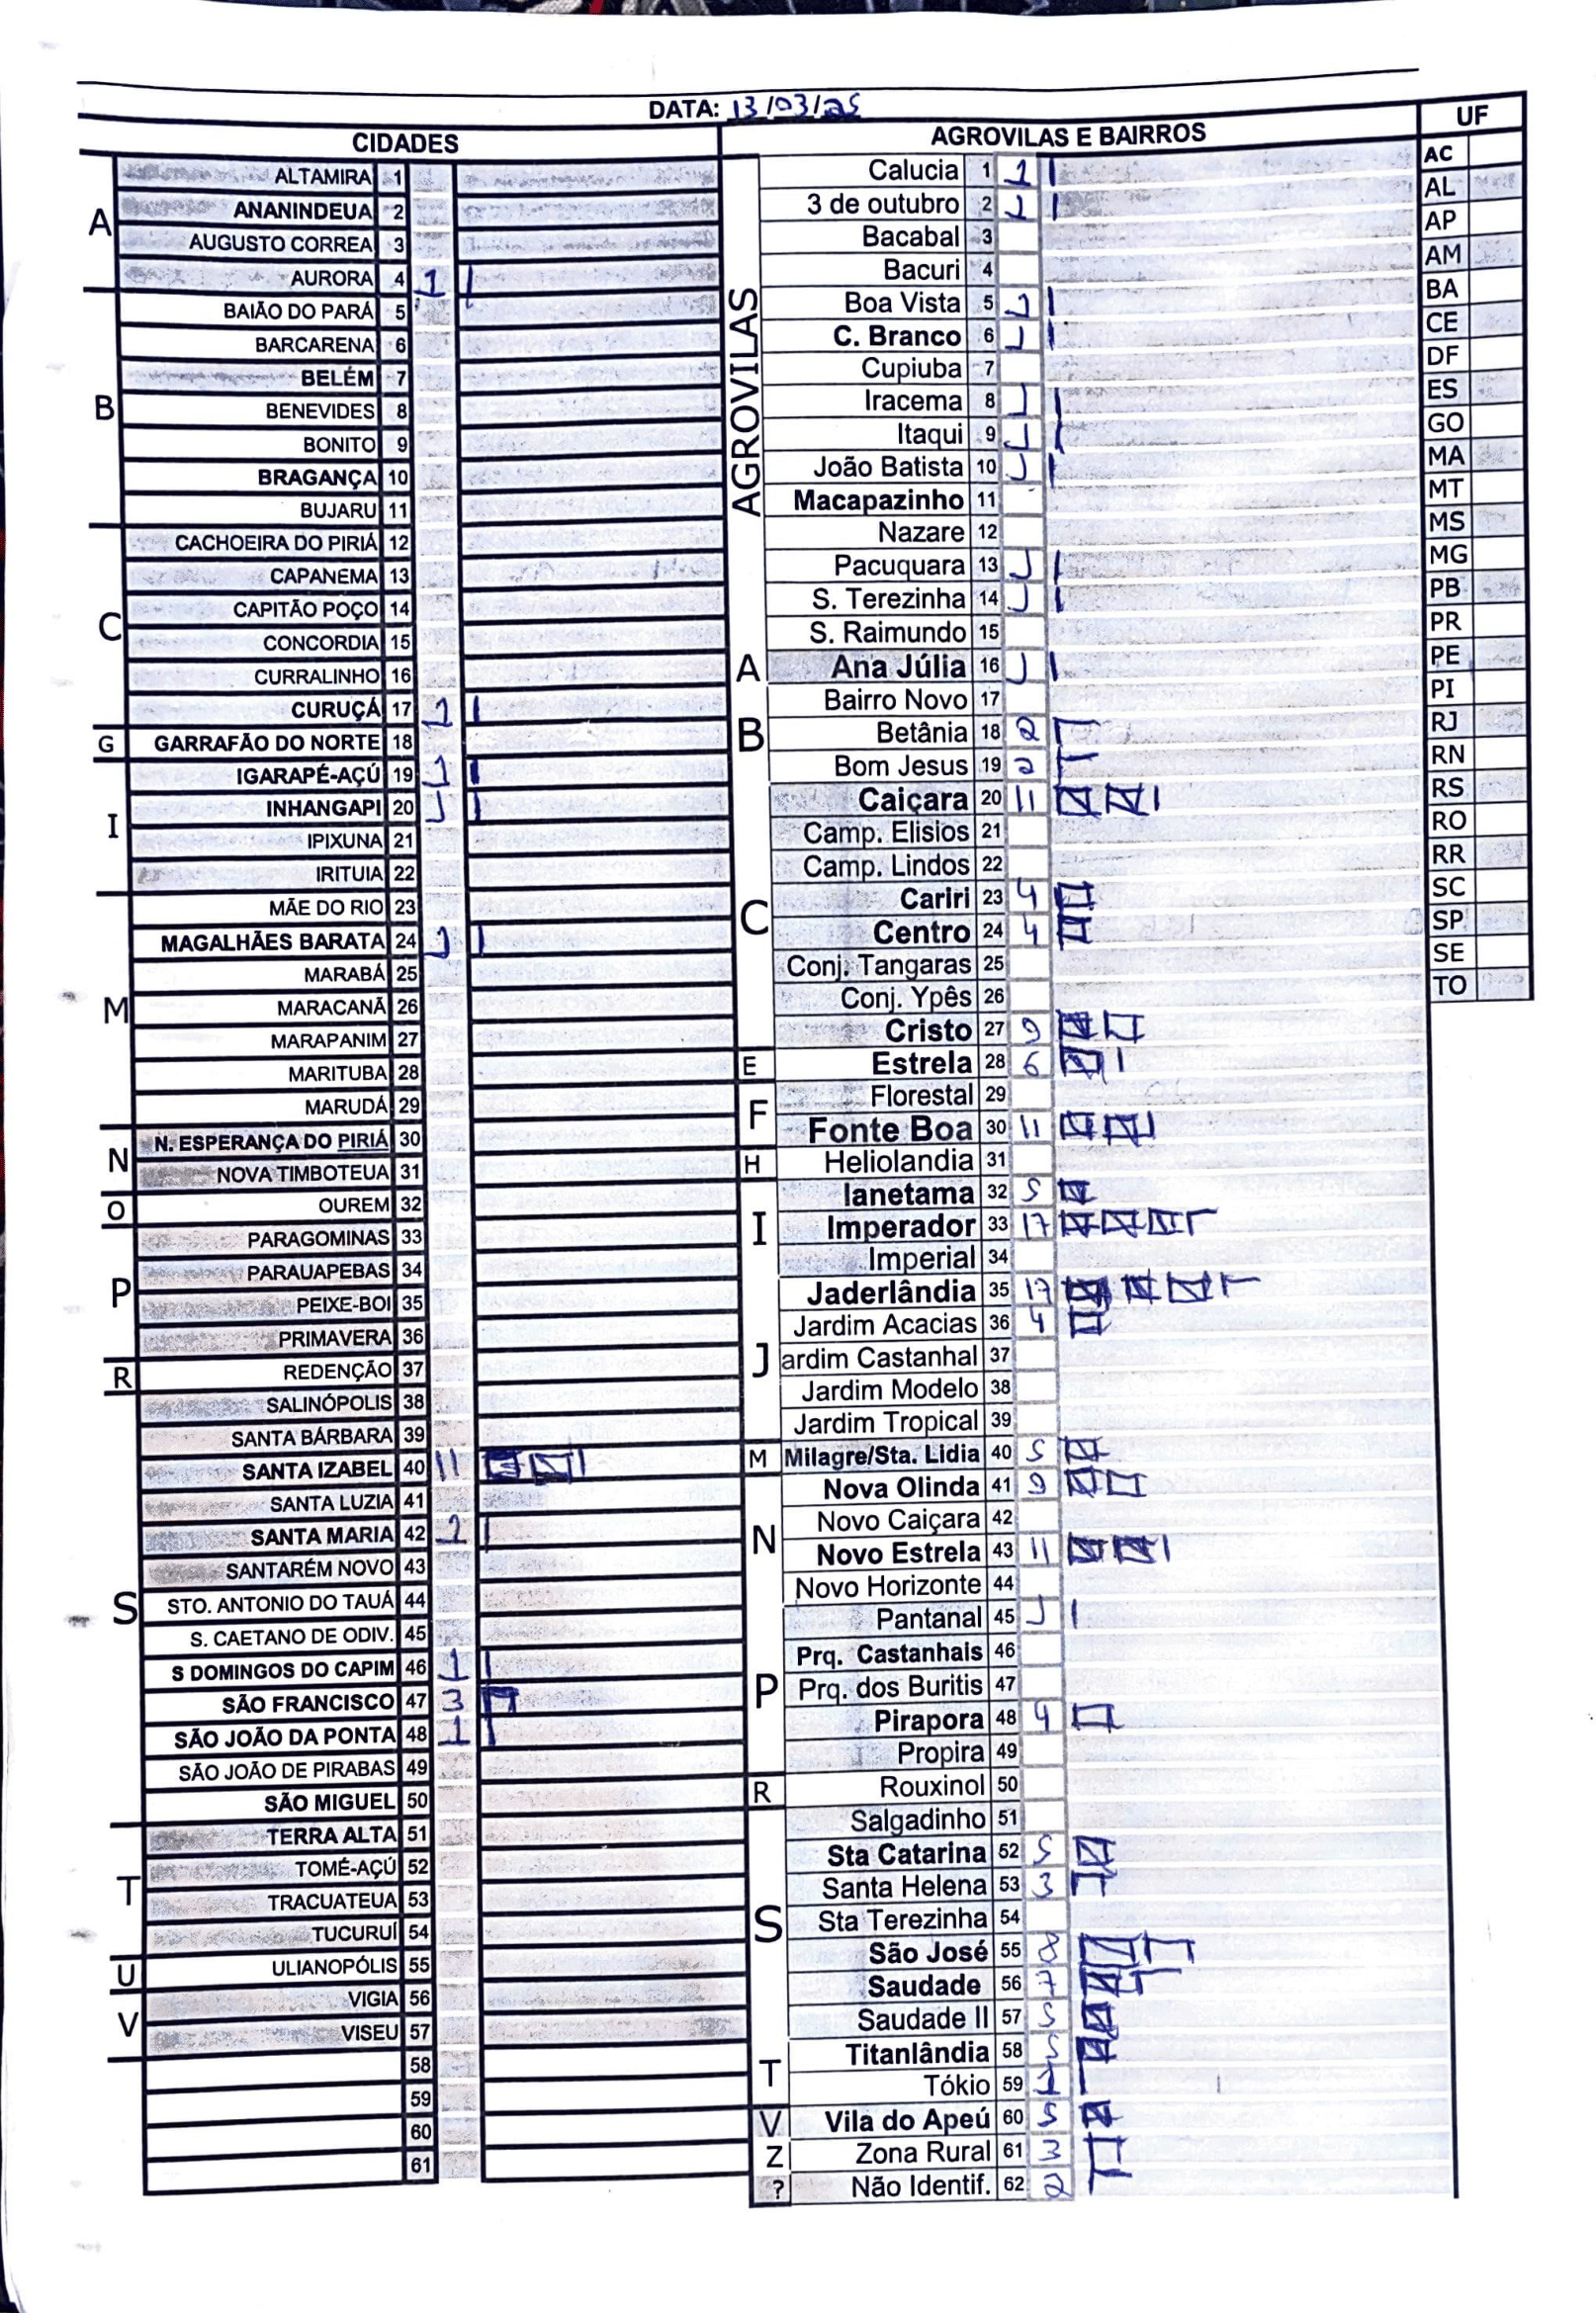 DATA: 13/03/25
CIDADES
A
ALTAMIRA 1
ANANINDEUA 2
AUGUSTO CORREA 3
AURORA 4 1
B
BAIÃO DO PARÁ 5
BARCARENA 6
BELÉM 7
BENEVIDES 8
BONITO 9
BRAGANÇA 10
BUJARU 11
C
CACHOEIRA DO PIRIÁ 12
CAPANEMA 13
CAPITÃO POÇO 14
CONCORDIA 15
CURRALINHO 16
CURUÇÁ 17 1
G
GARRAFÃO DO NORTE 18
I
IGARAPÉ-AÇÚ 19 1
INHANGAPI 20 1
IPIXUNA 21
IRITUIA 22
M
MÃE DO RIO 23
MAGALHÃES BARATA 24 1
MARABÁ 25
MARACANÃ 26
MARAPANIM 27
MARITUBA 28
MARUDÁ 29
N
N. ESPERANÇA DO PIRIÁ 30
NOVA TIMBOTEUA 31
O
OUREM 32
P
PARAGOMINAS 33
PARAUAPEBAS 34
PEIXE-BOI 35
PRIMAVERA 36
R
REDENÇÃO 37
S
SALINÓPOLIS 38
SANTA BÁRBARA 39
SANTA IZABEL 40 11
SANTA LUZIA 41
SANTA MARIA 42 1
SANTARÉM NOVO 43
STO. ANTONIO DO TAUÁ 44
S. CAETANO DE ODIV. 45
S DOMINGOS DO CAPIM 46 1
SÃO FRANCISCO 47 3
SÃO JOÃO DA PONTA 48 1
SÃO JOÃO DE PIRABAS 49
SÃO MIGUEL 50
T
TERRA ALTA 51
TOMÉ-AÇÚ 52
TRACUATEUA 53
TUCURUÍ 54
U
ULIANOPÓLIS 55
V
VIGIA 56
VISEU 57
58
59
60
61
AGROVILAS E BAIRROS
AGROVILAS
Calucia 1 1
3 de outubro 2 1
Bacabal 3
Bacuri 4
Boa Vista 5 1
C. Branco 6 1
Cupiuba 7
Iracema 8 1
Itaqui 9 1
João Batista 10 1
Macapazinho 11
Nazare 12
Pacuquara 13 1
S. Terezinha 14 1
S. Raimundo 15
A
Ana Júlia 16 1
B
Bairro Novo 17
Betânia 18 2
Bom Jesus 19 2
C
Caiçara 20 11
Camp. Elisios 21
Camp. Lindos 22
Cariri 23 4
Centro 24 4
Conj. Tangaras 25
Conj. Ypês 26
Cristo 27 9
E
Estrela 28 6
F
Florestal 29
Fonte Boa 30 11
H
Heliolandia 31
I
Ianetama 32 5
Imperador 33 17
Imperial 34
J
Jaderlândia 35 17
Jardim Acacias 36 4
ardim Castanhal 37
Jardim Modelo 38
Jardim Tropical 39
M
Milagre/Sta. Lidia 40 5
N
Nova Olinda 41 9
Novo Caiçara 42
Novo Estrela 43 11
Novo Horizonte 44
P
Pantanal 45 1
Prq. Castanhais 46
Prq. dos Buritis 47
Pirapora 48 4
Propira 49
R
Rouxinol 50
S
Salgadinho 51
Sta Catarina 52 5
Santa Helena 53 3
Sta Terezinha 54
São José 55 8
Saudade 56 7
Saudade II 57 5
T
Titanlândia 58 5
Tókio 59 1
V
Vila do Apeú 60 5
Z
Zona Rural 61 3
?
Não Identif. 62 2
UF
AC
AL
AP
AM
BA
CE
DF
ES
GO
MA
MT
MS
MG
PB
PR
PE
PI
RJ
RN
RS
RO
RR
SC
SP
SE
TO